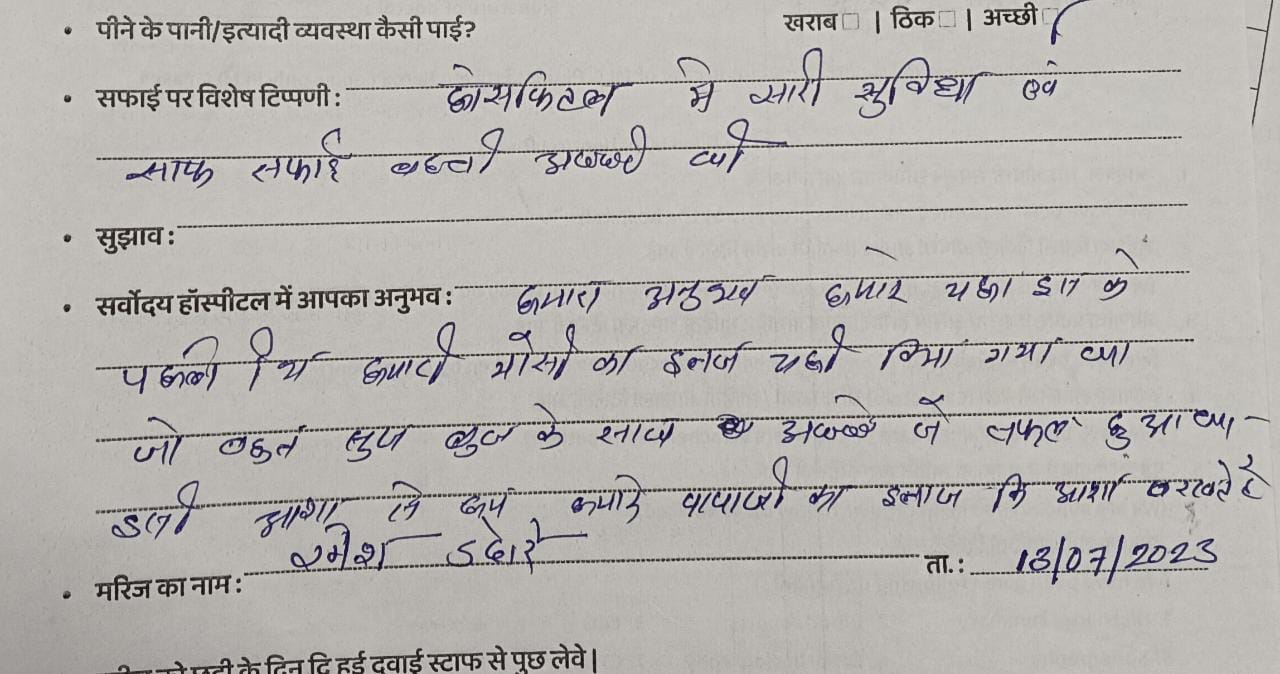 • पीने के पानी/इत्यादी व्यवस्था कैसी पाई? खराब□ | ठिक□ | अच्छी□
• सफाई पर विशेष टिप्पणी : होसपिटल मे सारी सुविधा एवं
साफ सफाई बहुती अच्छी थी
• सुझाव :
• सर्वोदय हॉस्पीटल में आपका अनुभव : हमारा अनुभव हमारे यहा इस के
पहली हमारी मौसी का इलाज यही किया गया था
जो बहुत सुज बुज के साथ अच्छे से सफल हुआ था
इसी आशा से हम हमारे पापाजी का इलाज कि आशा रखते है
• मरिज का नाम : रमेश ता.: 13/07/2023
छुट्टी के दिन दि हुई दवाई स्टाफ से पुछ लेवे |